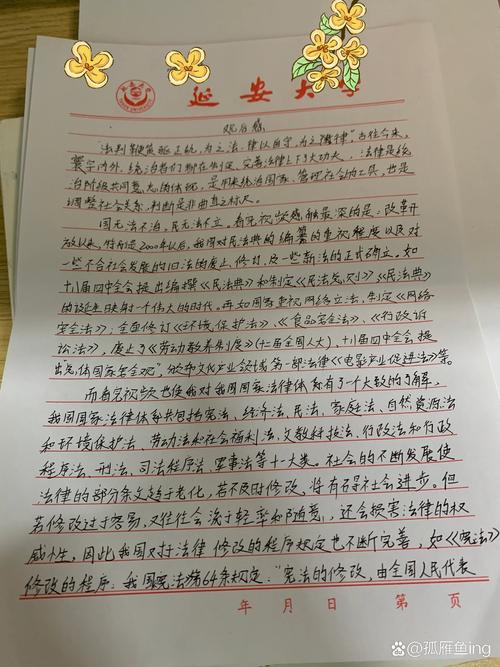 延安大学
观后感
为之法,律以自守,为之徽律",古往今来,
寰宇内外,统治者们都在制定、完善法律上下了大功夫。法律是统
治阶级共同意志的体现,是用来统治国家、管理社会的工具,也是
调整社会关系、判断是非曲直之标尺。
国无法不治,民无法不立。看完视频感触最深的是,改革开
放以来,特别是2000年以后,我国对民法典的编纂的重视程度以及对
一些不合社会发展的旧法的废止、修订,及一些新法的正式确立。如
十八届四中全会提出编撰《民法典》和制定《民法总则》,《民法典》
的诞生映射一个伟大的时代。再如国家重视网络立法,制定《网络
安全法》,全面修订《环境保护法》、《食品安全法》、《行政诉
讼法》,废止了《劳动教养制度》(十二届全国人大),十八届四中全会提
出"总体国家安全观",颁布文化产业领域第一部法律《电影产业促进法》等。
而看完视频也使我对我国国家法律体系有了个大致的了解,
我国国家法律体系共包括宪法、经济法、民法、家庭法、自然资源法
和环境保护法、劳动法和社会福利法、文教科技法、行政法和行政
程序法、刑法、司法程序法、军事法等十大类。社会的不断发展,使
法律的部分条文趋于老化,若不及时修改,将有碍社会进步。但
若修改过于容易,又往往会流于轻率和随意,还会损害法律的权
威性,因此我国对于法律修改的程序规定也不断完善,如《宪法》
修改的程序:我国宪法第64条规定:"宪法的修改,由全国人民代表
年 月 日 第 页
Bai百科 @孤雁鱼ing